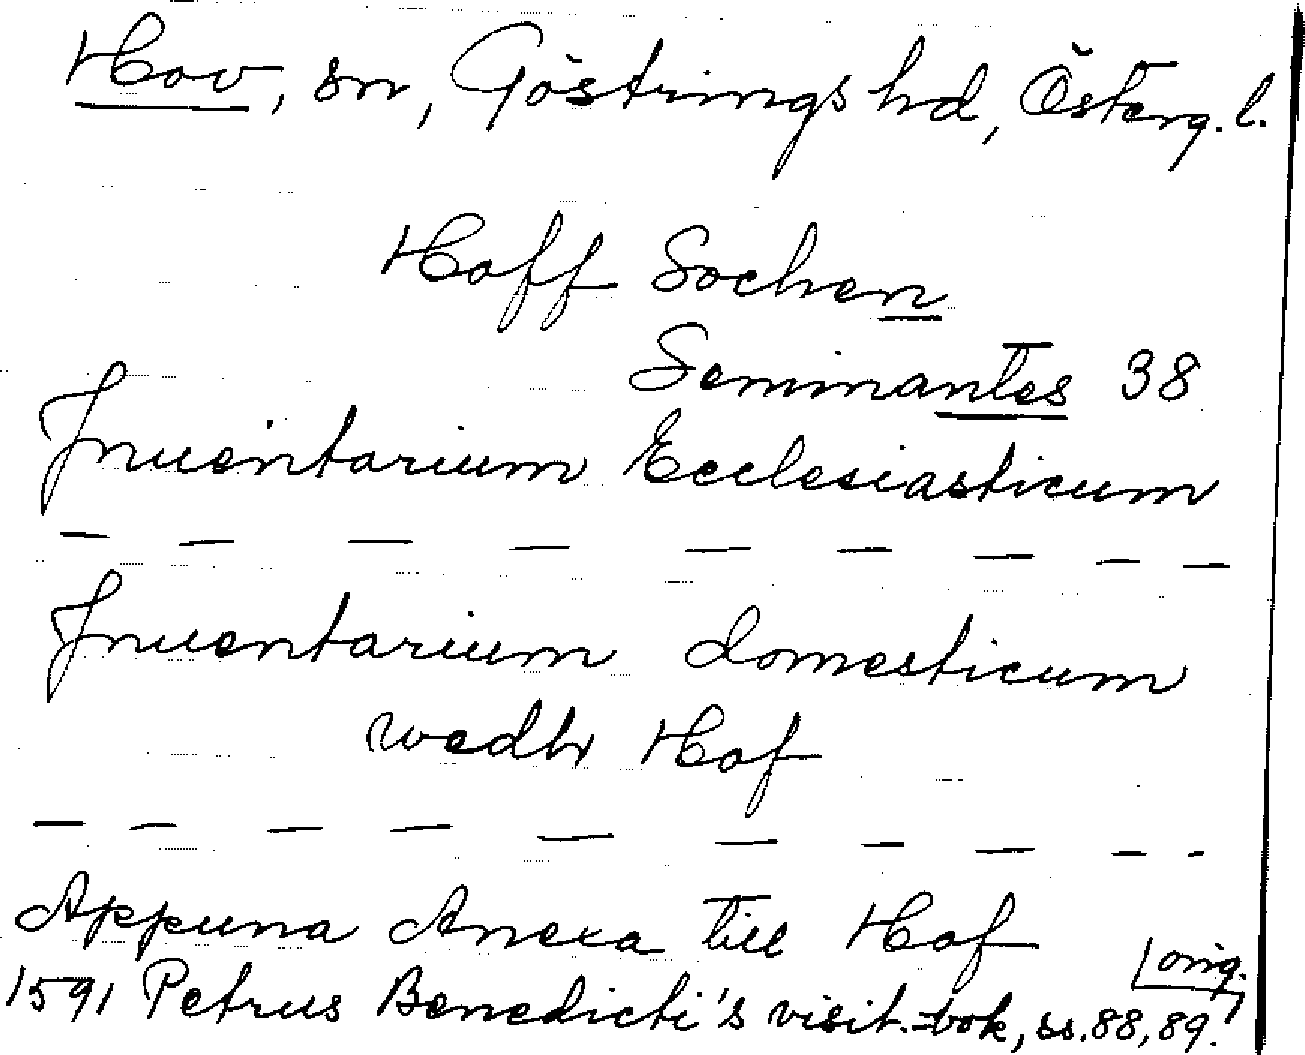 Hov, sn, Göstrings hd, Österg. l.
Hoff Sochen
Seminantes 38
Inuentarium Ecclesiasticum
— — — — — — — — —
Inuentarium domesticum
wedh Hof
— — — — — — — — — -
Appuna Anexa till Hof
orig.
1591 Petrus Benedicti's visit.-bok, ss. 88, 89.